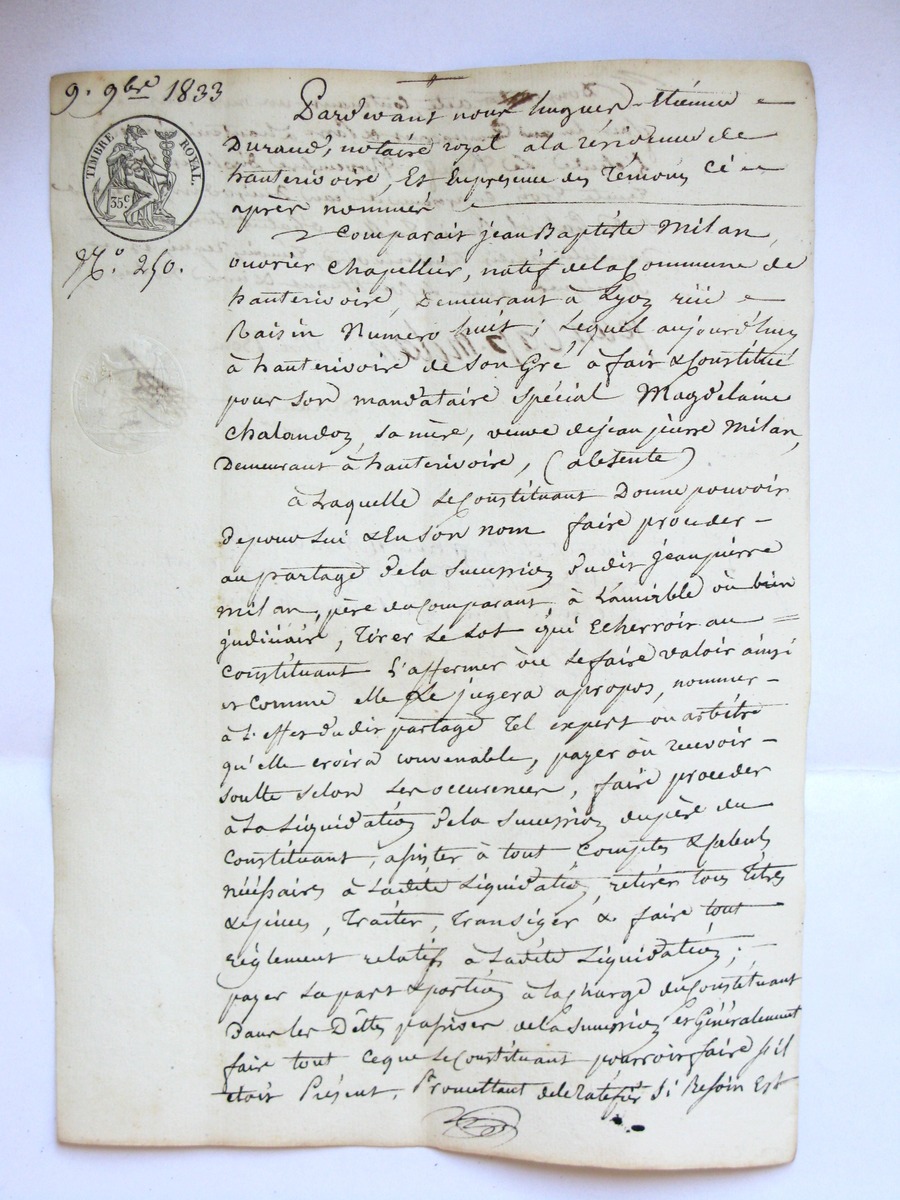 9. 9bre 1833
TIMBRE ROYAL.
35c
No. 250.
Pardevant nous hugues-Etienne
Durand, notaire royal a la résidence de
hauterivoire, Et En presence des Témoins Cé
après nommés
Comparait jean Baptiste Milan,
ouvrier Chapellier, natif de la Commune de
hauterivoire, Demeurant à Lyon rüe
Raisin Numero huit; Lequel aujourd'huy
à hauterivoire de son Gré à fait & Constitué
pour son mandataire spécial Magdelaine
Chalandon, sa mère, veuve de jean pierre Milan,
Demeurant à hauterivoire, (absente)
à Laquelle Le Constituant Donne pouvoir
de pour Lui & En son nom faire proceder
au partage de la succession dudit jean pierre
Milan, père du Comparant, à L'amiable où bien
judiciair, Tirer Le Lot qui Echerroit au
Constituant L'affermer où Le faire valoir ainsi
et Comme elle Le jugera apropos, nommer
à L'effet dudit partage Tel expert ou arbitre
qu'elle croira convenable, payer où recevoir
soulte selon Les occurences, faire proceder
à La Liquidation de la succession du père du
Constituant, assister à tout Comptes &
nécéssaires à Ladite Liquidation, retirer tous Titres
& pièces, Traiter, Transiger & faire tout
règlement relatifs à Ladite Liquidation;
payer sa part & portion à la charge du Constituant
Dans les Dettes passives de la succession et Généralement
faire tout Ceque Le Constituant pourroit faire s'il
étoit Présent, Promettant de le Ratifier Si Besoin Est